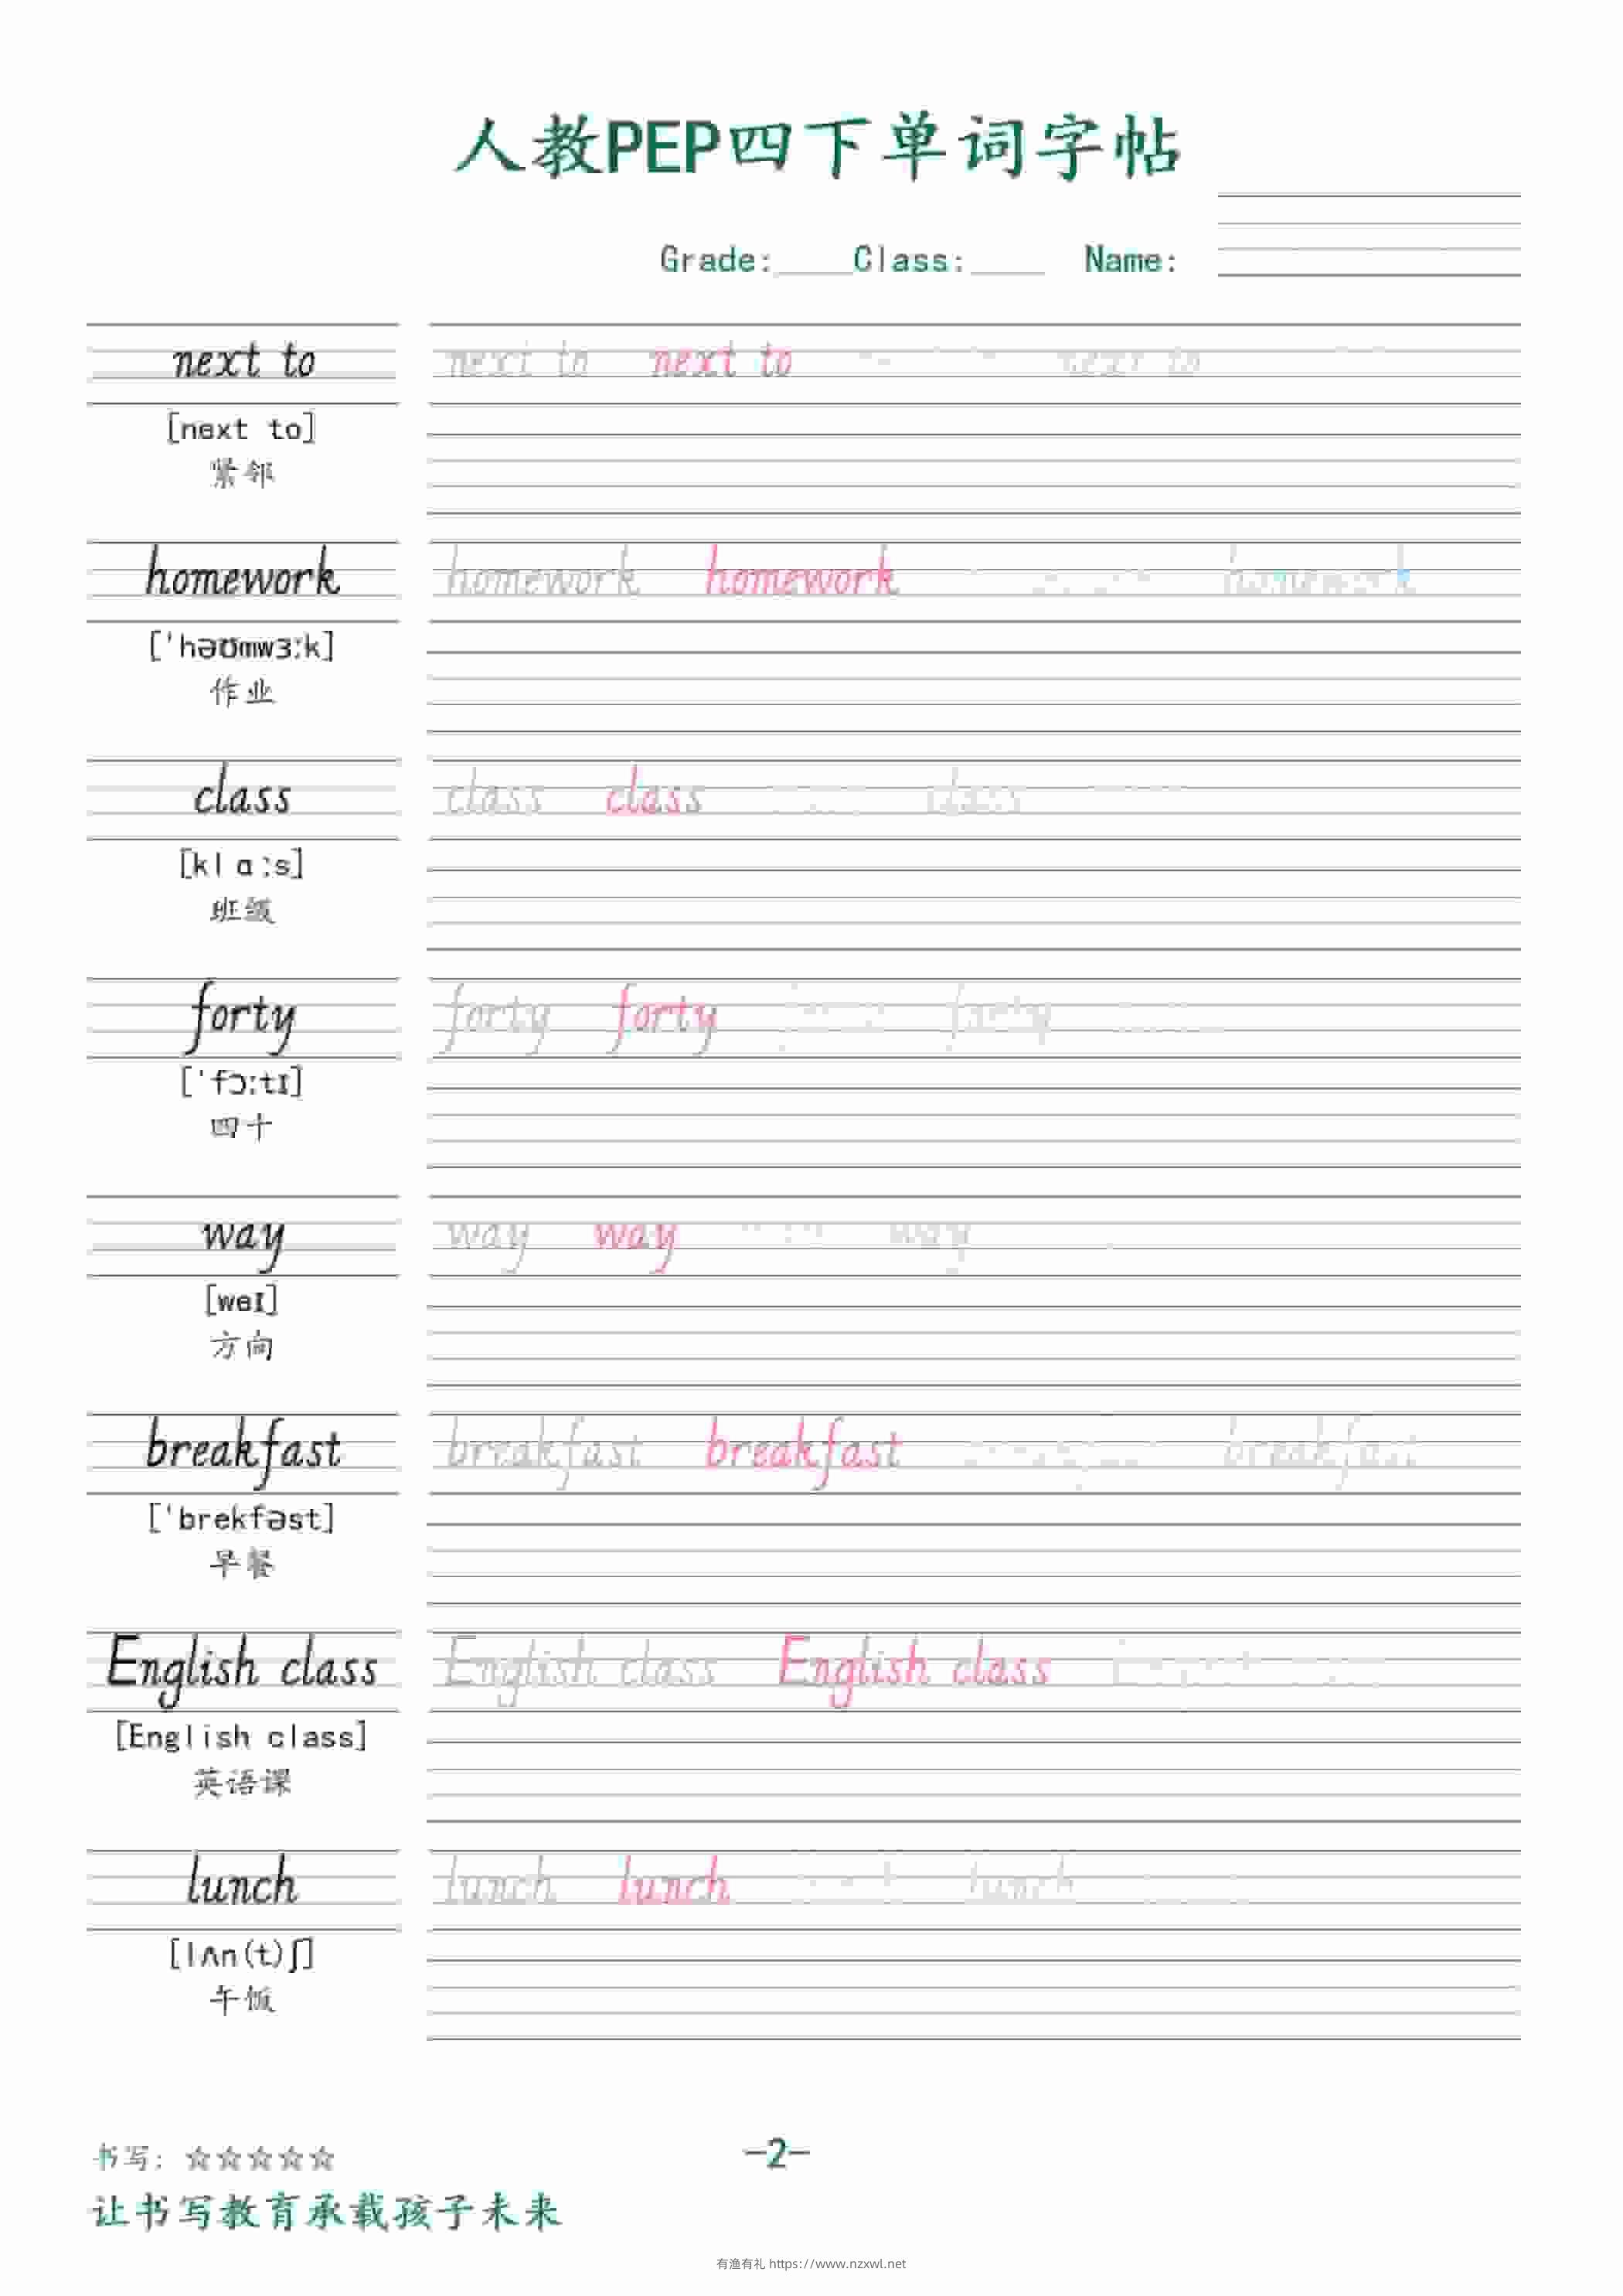 人教PEP四下单词字帖
Grade:____Class:____ Name:
next to next to next to next to
[next to]
紧邻
homework homework homework homework
['həʊmwɜːk]
作业
class class class class
[klɑːs]
班级
forty forty forty forty
['fɔːtɪ]
四十
way way way way
[weɪ]
方向
breakfast breakfast breakfast breakfast
['brekfəst]
早餐
English class English class English class
[English class]
英语课
lunch lunch lunch lunch
[lʌn(t)ʃ]
午饭
书写：☆☆☆☆☆
-2-
让书写教育承载孩子未来
有渔有礼 https://www.nzxwl.net